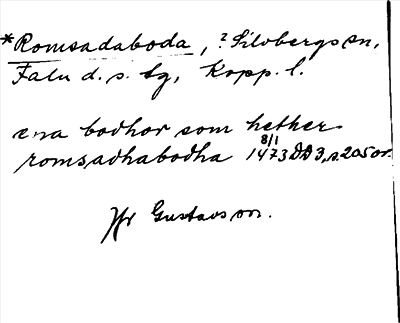 *Romsadaboda, ? Silvbergs sn,
Falu d. s. tg, Kopp. l.
ena bodhor som hether
romsadhabodha 8/1 1473 DD 3, s. 205 or.
Hr Gustavsson.